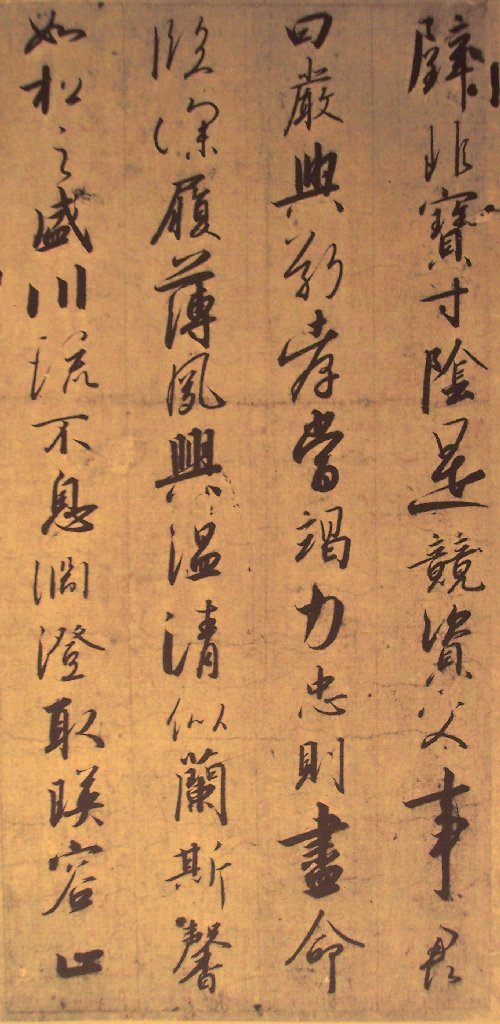 璧非寶寸陰是競資父事君
曰嚴與敬孝當竭力忠則盡命
臨深履薄夙興溫凊似蘭斯馨
如松之盛川流不息淵澄取暎容止